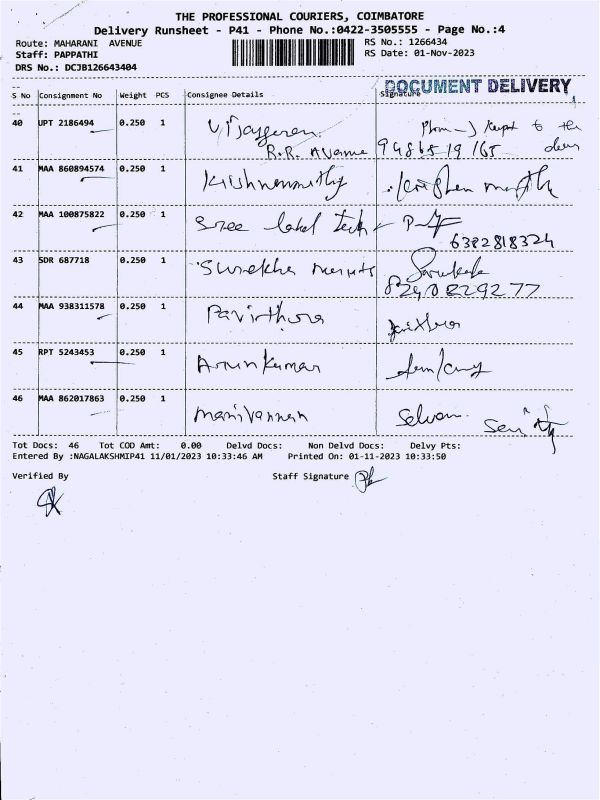 THE PROFESSIONAL COURIERS, COIMBATORE
Delivery Runsheet - P41 - Phone No.:0422-3505555 - Page No.:4
Route: MAHARANI AVENUE
RS No.: 1266434
Staff: PAPPATHI
RS Date: 01-Nov-2023
DRS No.: DCJB126643404
DOCUMENT DELIVERY
S No Consignment No Weight PCS Consignee Details Signature
40 UPT 2186494 0.250 1 Vijayeren to the
R.R. Avenue door
41 MAA 860894574 0.250 1
42 MAA 100875822 0.250 1 Sree label Tech
6382818324
43 SDR 687718 0.250 1 Surekha
8240829277
44 MAA 938311578 0.250 1 Pavithra
45 RPT 5243453 0.250 1 Arunkumar
46 MAA 862017863 0.250 1 Manivannan Selvam
Tot Docs: 46 Tot COD Amt: 0.00 Delvd Docs: Non Delvd Docs: Delvy Pts:
Entered By :NAGALAKSHMIP41 11/01/2023 10:33:46 AM Printed On: 01-11-2023 10:33:50
Verified By Staff Signature